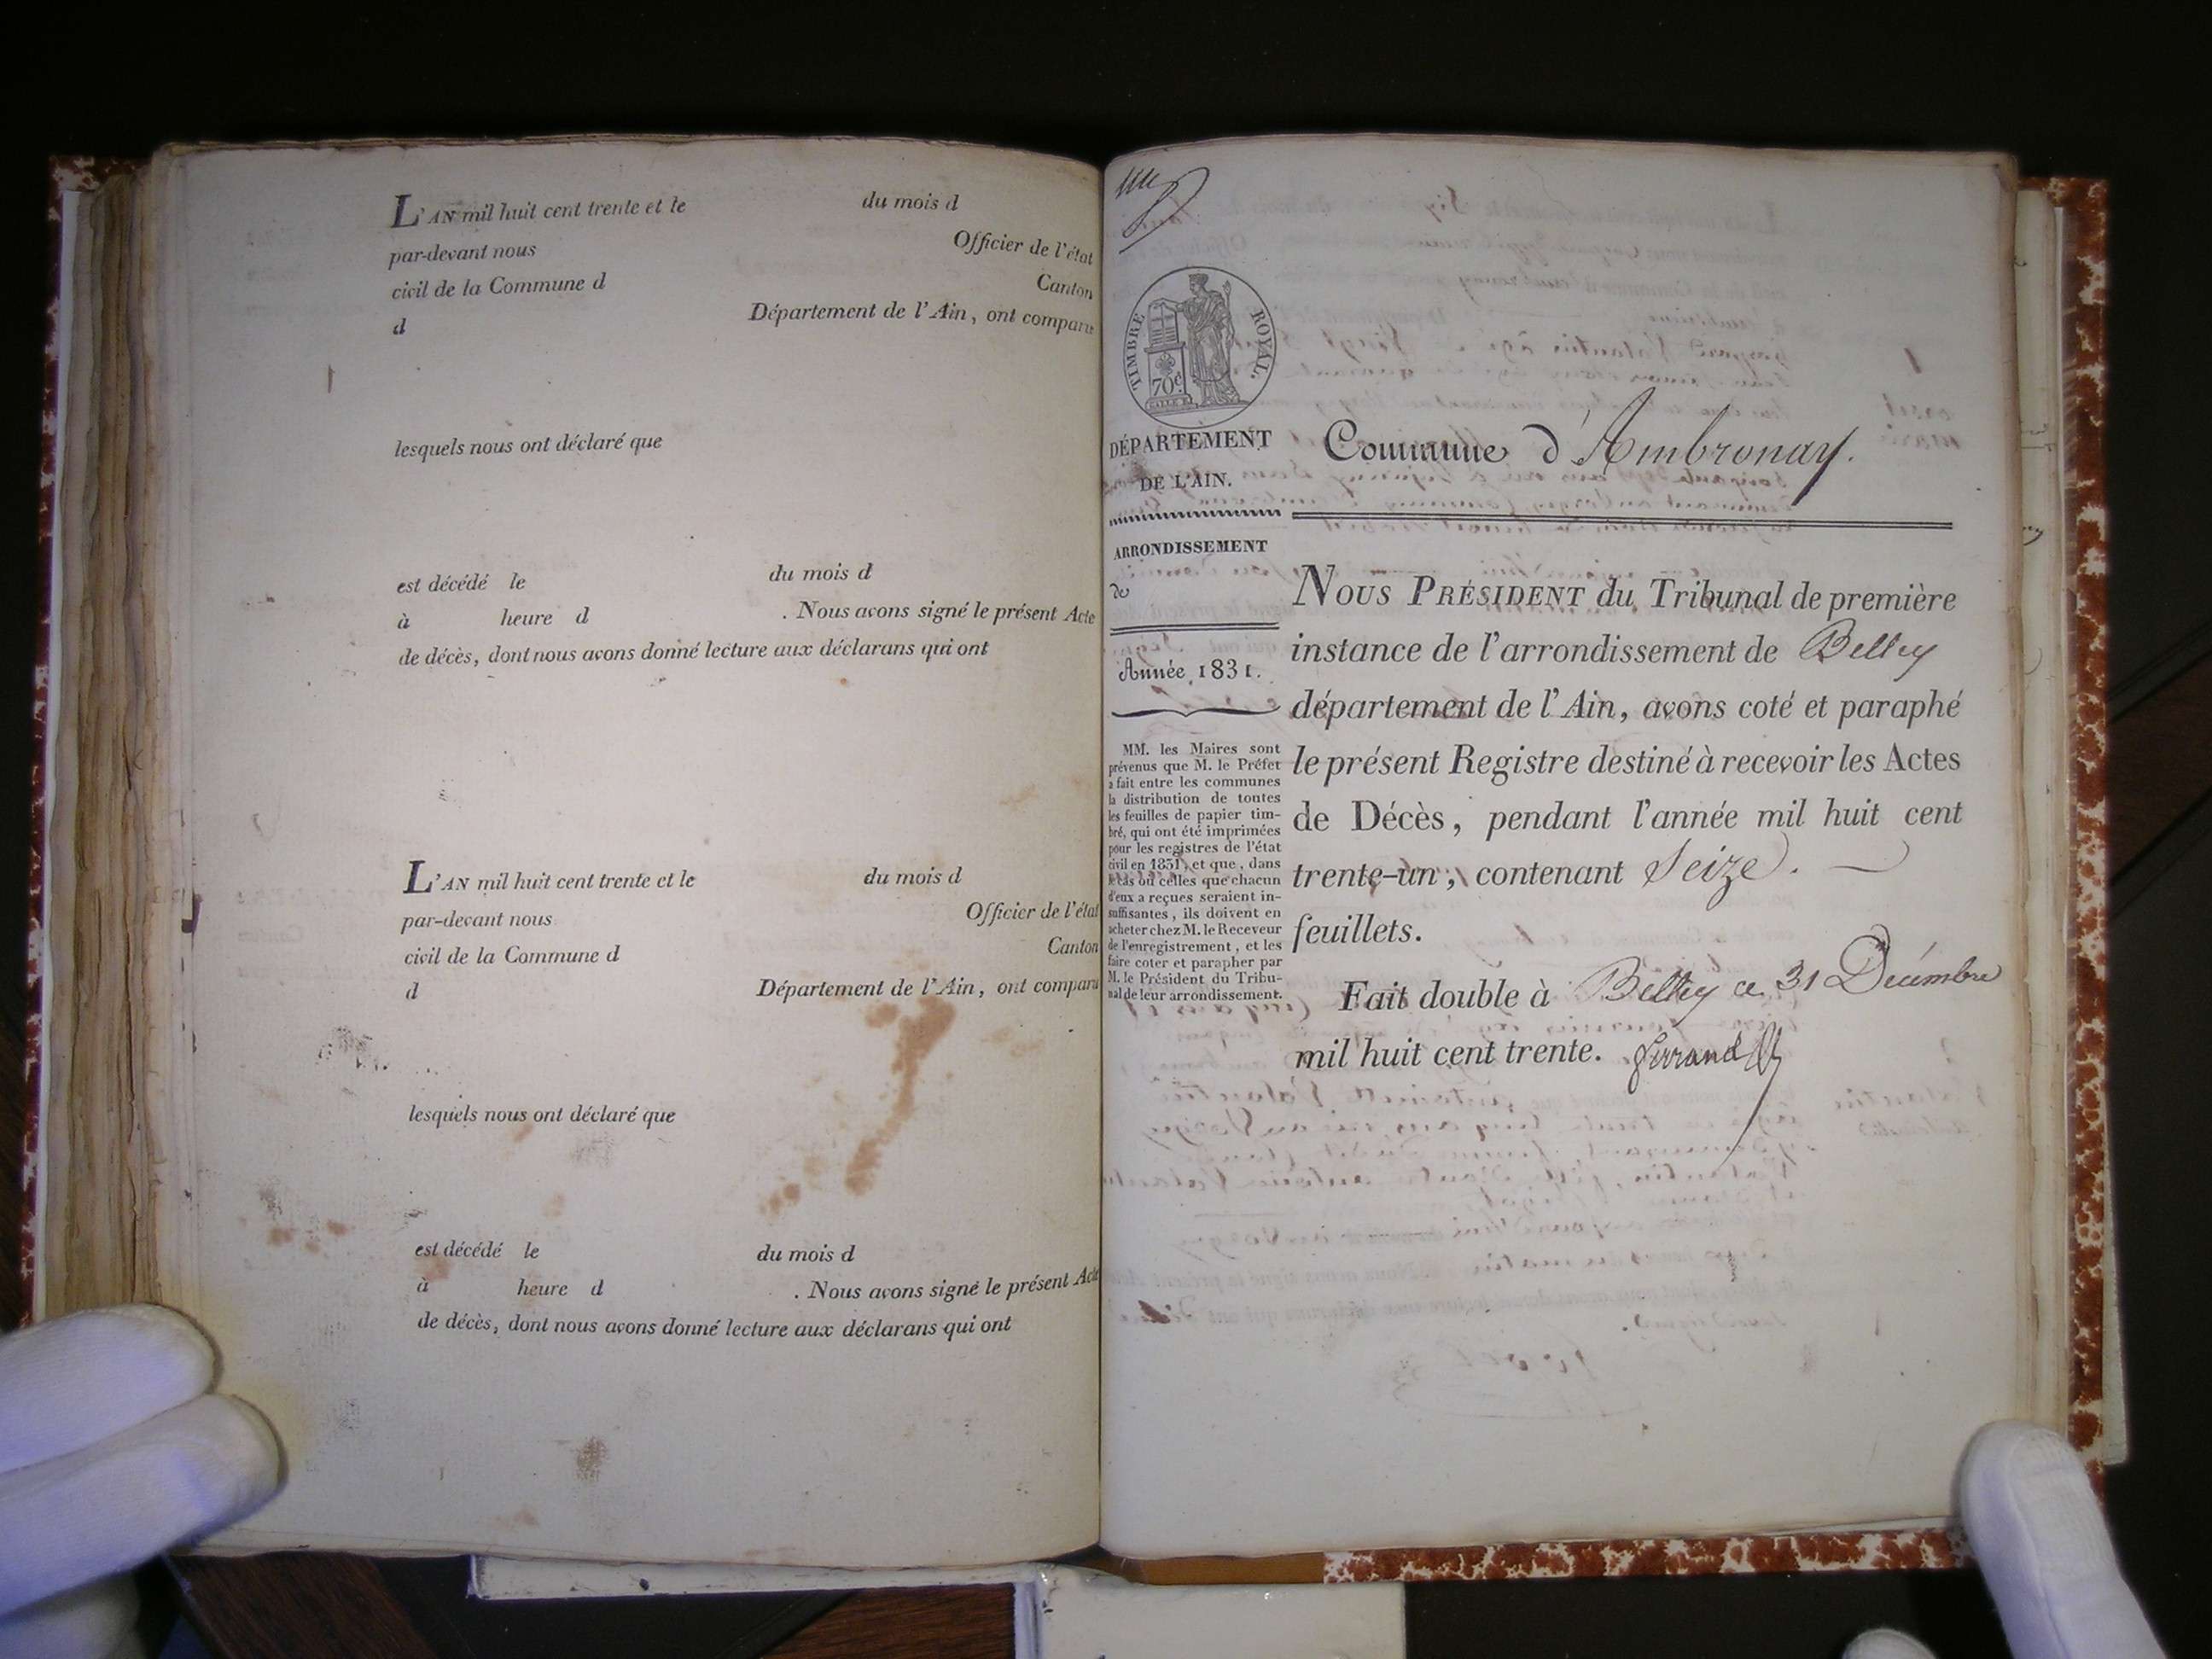 L'AN mil huit cent trente et le du mois d
par-devant nous Officier de l'état
civil de la Commune d Canton
d Département de l'Ain, ont comparu
lesquels nous ont déclaré que
est décédé le du mois d
à heure d . Nous avons signé le présent Acte
de décès, dont nous avons donné lecture aux déclarans qui ont
L'AN mil huit cent trente et le du mois d
par-devant nous Officier de l'état
civil de la Commune d Canton
d Département de l'Ain, ont comparu
lesquels nous ont déclaré que
est décédé le du mois d
à heure d . Nous avons signé le présent Acte
de décès, dont nous avons donné lecture aux déclarans qui ont
TIMBRE ROYAL.
70c
DÉPARTEMENT
DE L'AIN.
ARRONDISSEMENT
de
Année 1831.
MM. les Maires sont
prévenus que M. le Préfet
a fait entre les communes
la distribution de toutes
les feuilles de papier tim-
bré, qui ont été imprimées
pour les registres de l'état
civil en 1831, et que, dans
le cas où celles que chacun
d'eux a reçues seraient in-
suffisantes, ils doivent en
acheter chez M. le Receveur
de l'enregistrement, et les
faire coter et parapher par
M. le Président du Tribu-
nal de leur arrondissement.
Commune d'Ambronay.
NOUS PRÉSIDENT du Tribunal de première
instance de l'arrondissement de Belley
département de l'Ain, avons coté et paraphé
le présent Registre destiné à recevoir les Actes
de Décès, pendant l'année mil huit cent
trente-un, contenant Seize.
feuillets.
Fait double à Belley ce 31 Décembre
mil huit cent trente. ferrand